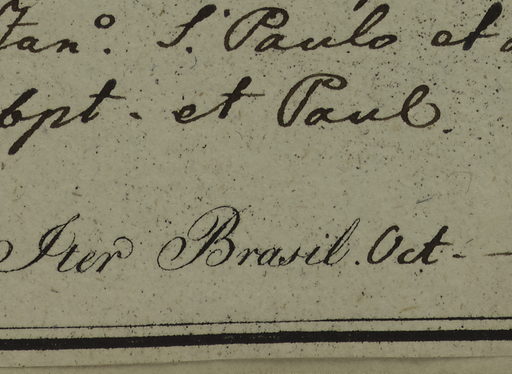 Jan°. S. Paulo et
bpt. et Paul.
Iter Brasil. Oct. —